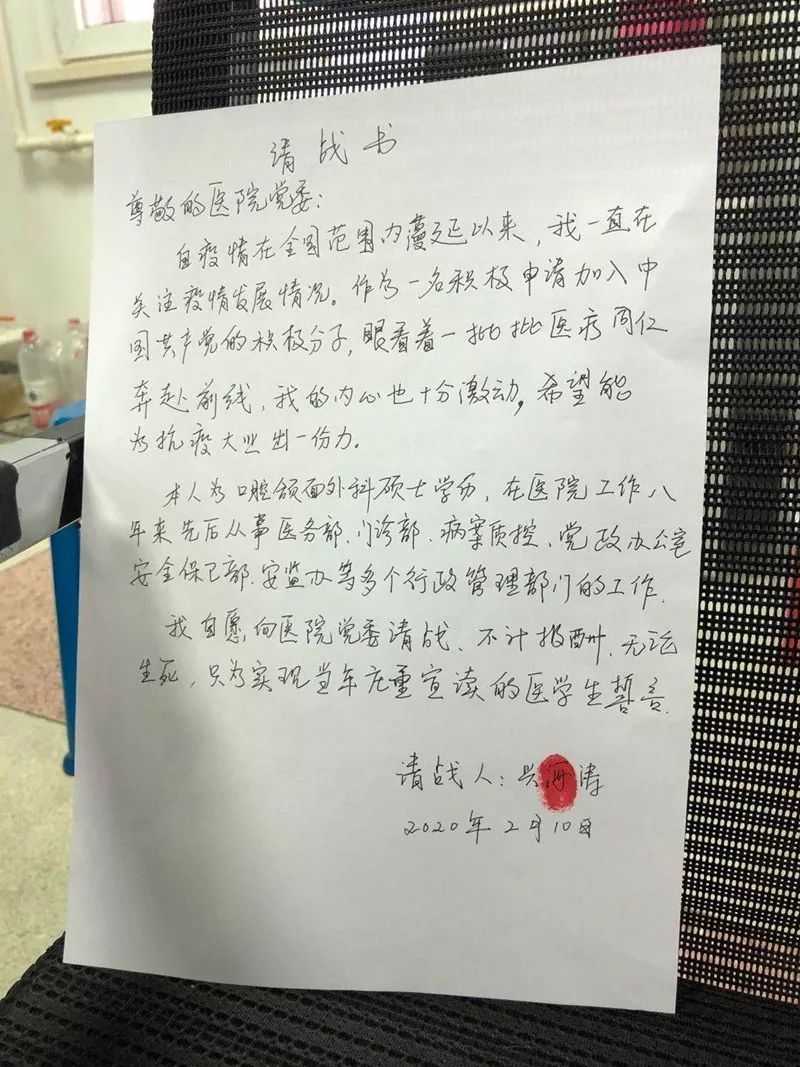 请战书
尊敬的医院党委：
自疫情在全国范围内蔓延以来，我一直在
关注疫情发展情况。作为一名积极申请加入中
国共产党的积极分子，眼看着一批批医疗同仁
奔赴前线，我的内心也十分激动，希望能
为抗疫大业出一份力。
本人为口腔颌面外科硕士学历，在医院工作八
年来先后从事医务部、门诊部、病案质控、党政办公室
安全保卫部、安监办等多个行政管理部门的工作.
我自愿向医院党委请战、不计报酬、无论
生死，只为实现当年庄重宣读的医学生誓言.
请战人：兴海涛
2020年2月10日